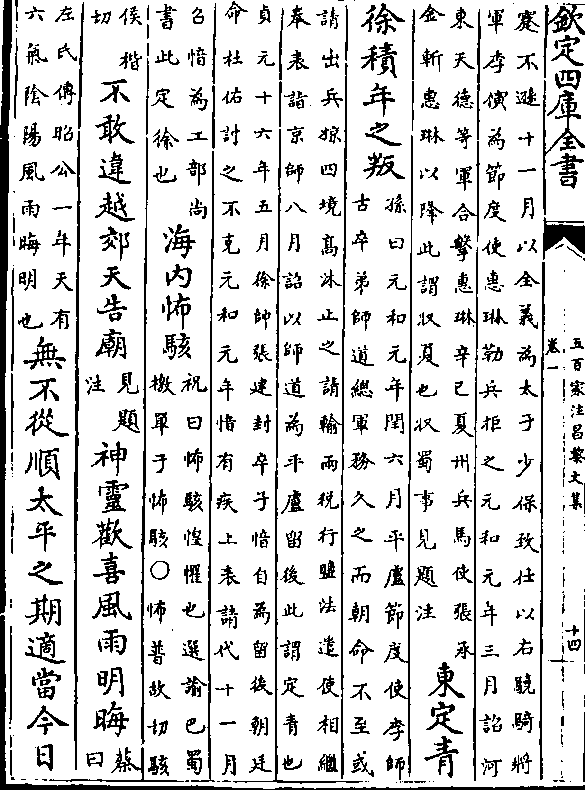 欽定四庫全書
五百家注昌黎文集
卷一
十四
蹇不遜十一月以全義為太子少保致仕以右驍騎將
軍李演為節度使惠琳勒兵拒之元和元年三月詔河
東天德等軍合擊惠琳辛巳夏州兵馬使張承
金斬惠琳以降此謂収夏也収蜀事見題注
東定青
徐積年之叛
孫曰元和元年閏六月平盧節度使李師
古卒弟師道總軍務久之而朝命不至或
請出兵掠四境高沐止之請輸兩税行鹽法遣使相繼
奉表詣京師八月詔以師道為平盧留後此謂定青也
貞元十六年五月徐帥張建封卒子愔自為留後朝廷
命杜佑討之不克元和元年愔有疾上表請代十一月
召愔為工部尚
書此定徐也
海内怖駭
祝曰怖駭惶懼也選諭巴蜀
檄單于怖駭〇怖普故切駭
侯楷
切
不敢違越郊天告廟
見題
注
神靈歡喜風雨明晦
蔡
曰
左氏傳昭公一年天有
六氣陰陽風雨晦明也
無不從順太平之期適當今日